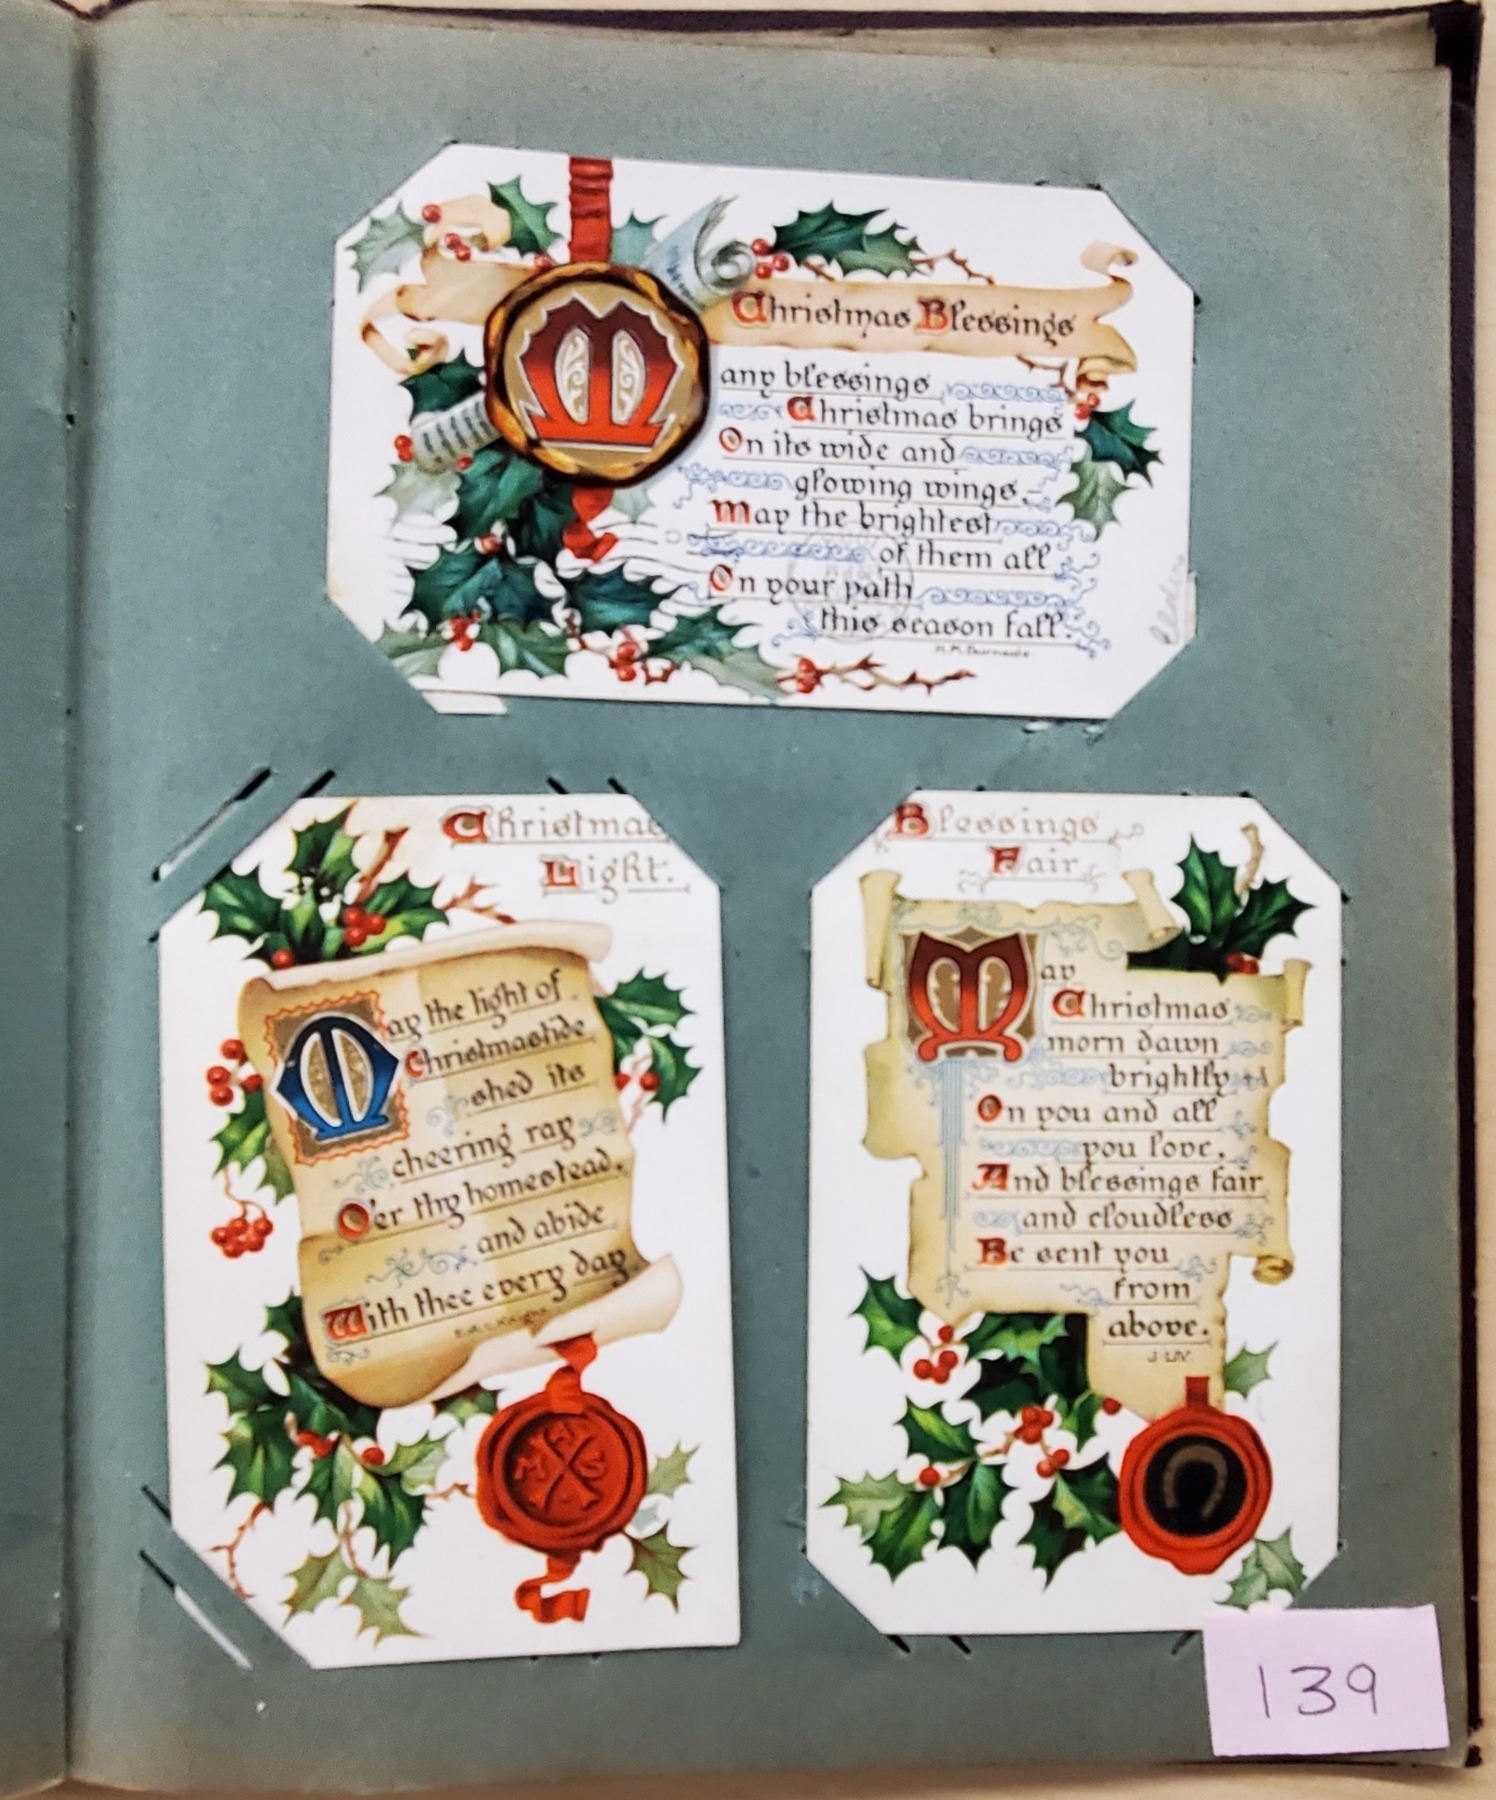 Christmas Blessings
Many blessings
Christmas brings
On its wide and
glowing wings,
May the brightest
of them all
On your path
this season fall.
H.M. Burnside
Christmas
Light.
May the light of
Christmastide
shed its
cheering ray
O'er thy homestead,
and abide
With thee every day.
Blessings
Fair
May
Christmas
morn dawn
brightly
On you and all
you love,
And blessings fair
and cloudless
Be sent you
from
above.
139